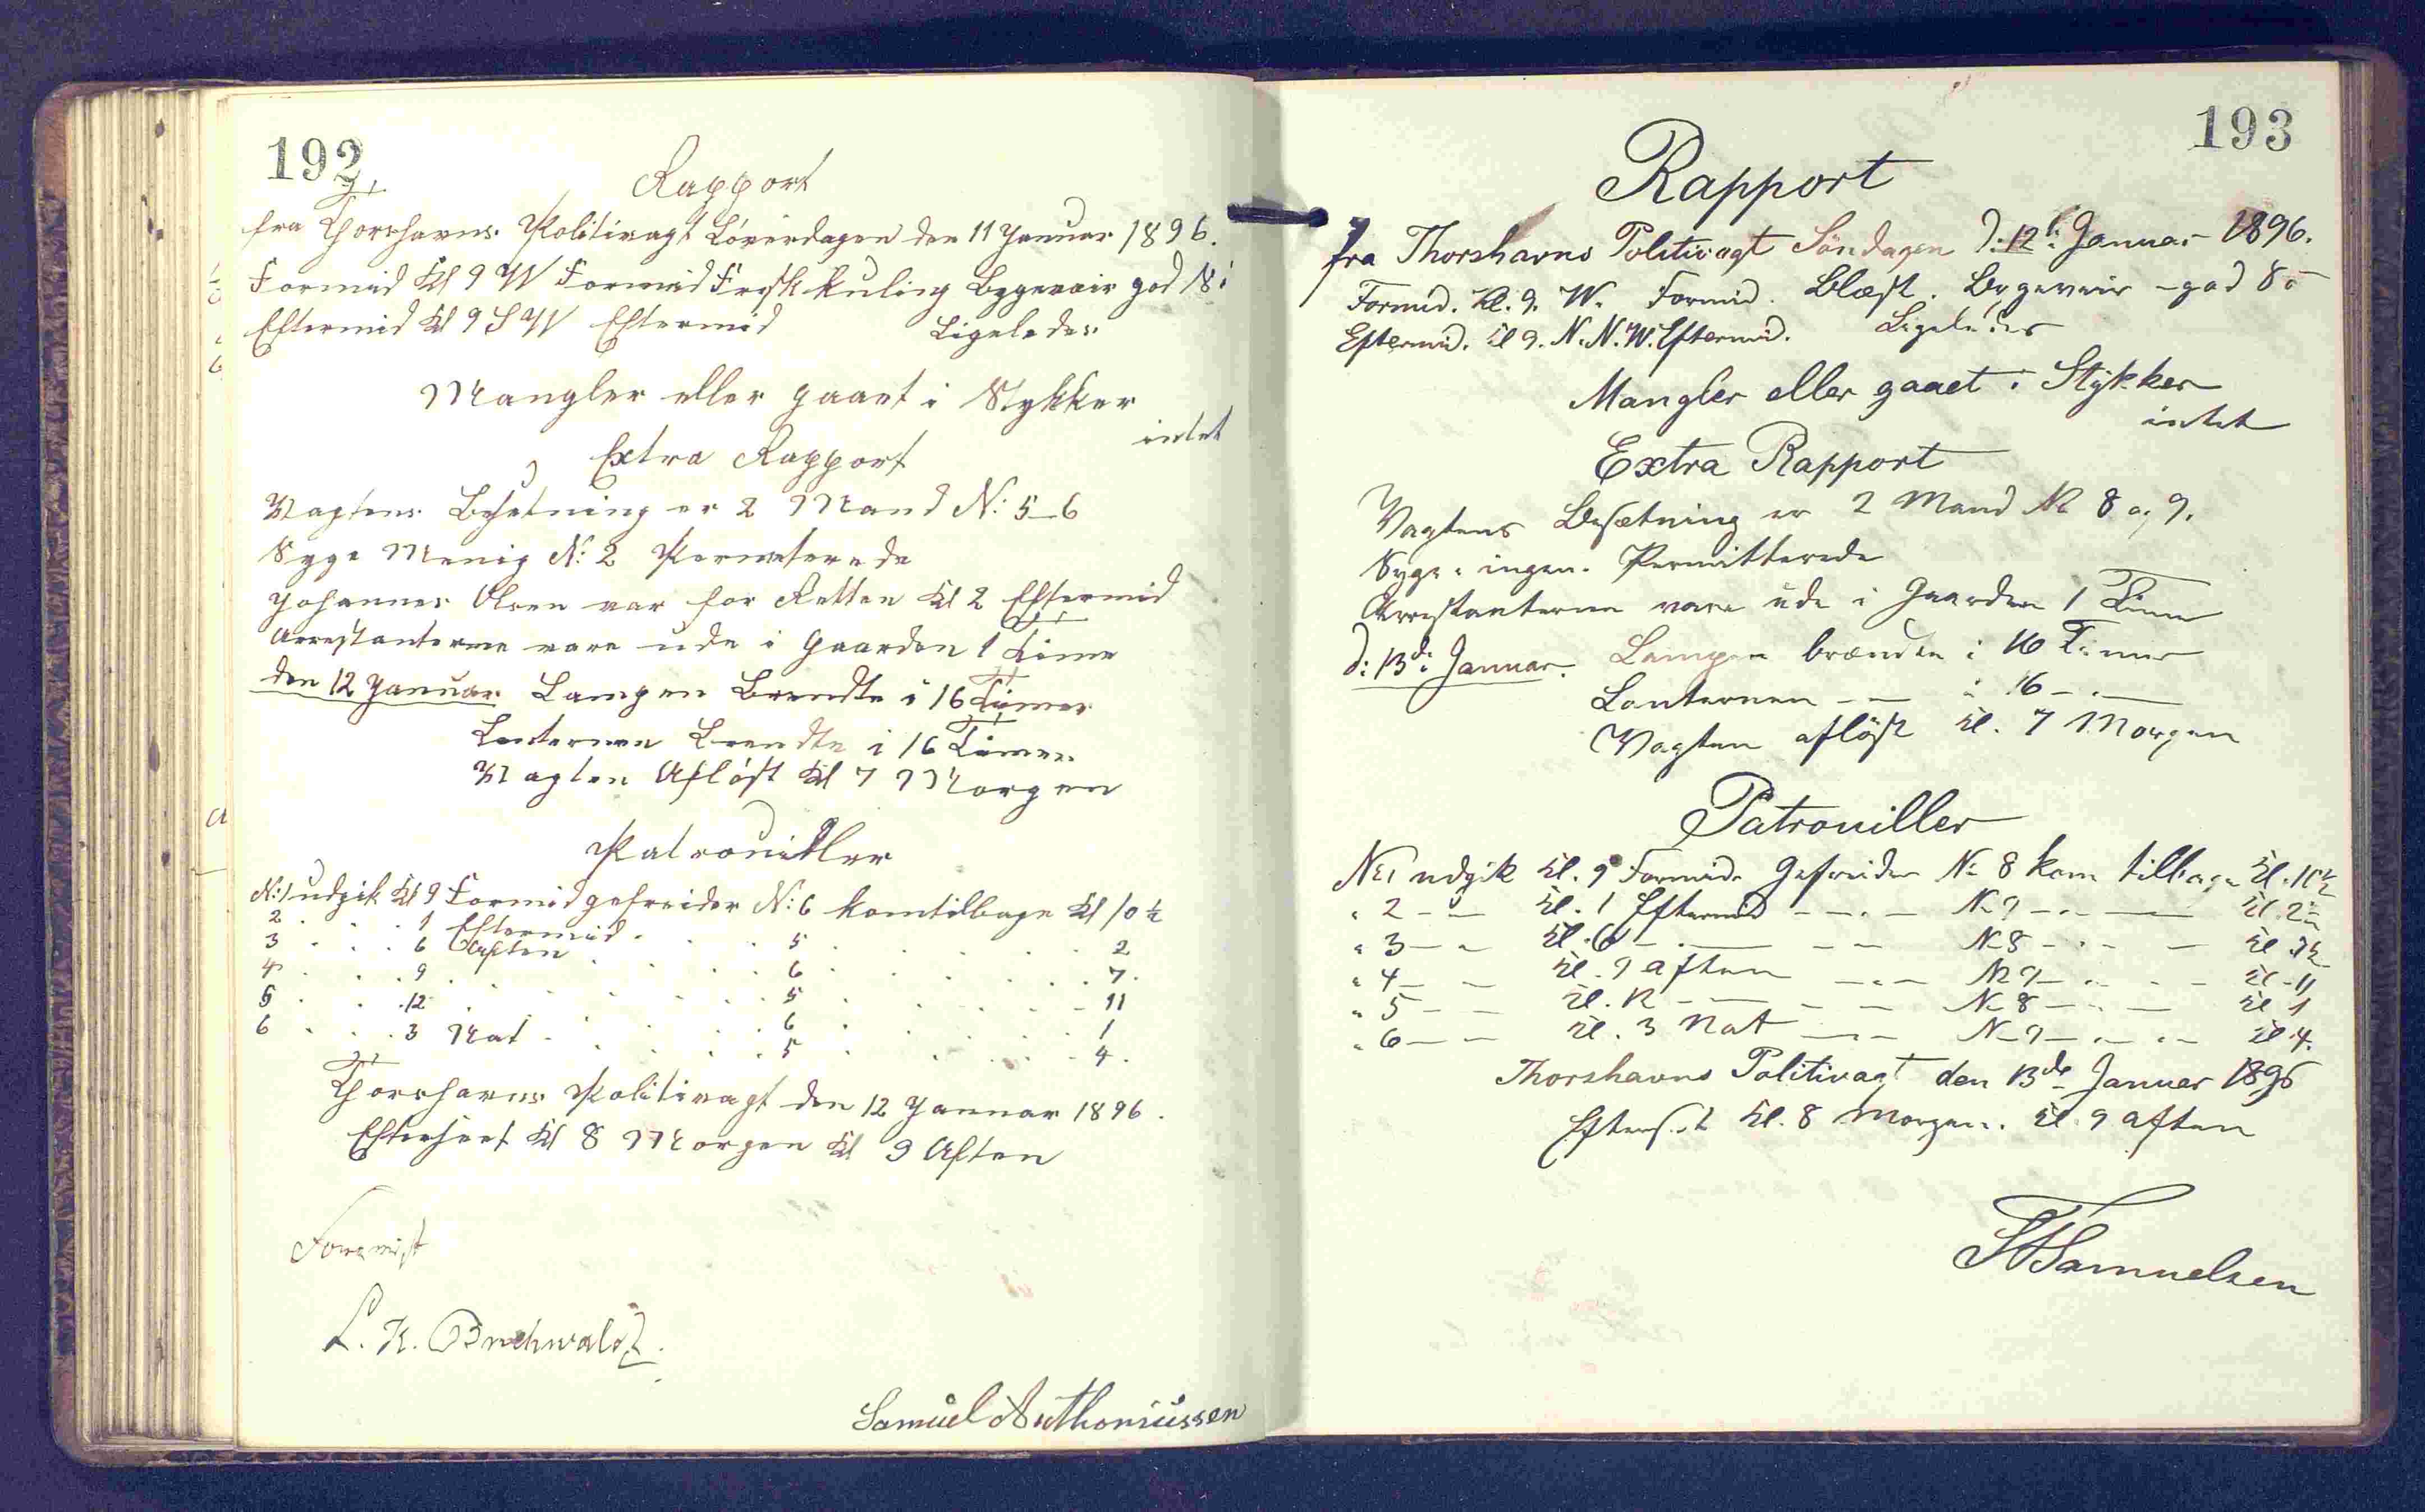 192
Rapport
fra Thorshavns Politivagt Löverdagen den 11 Januar 1896.
Formid Kl 9 W Formid Frisk Kuling Bygeveir god 8:
Eftermid Kl 9 S W Eftermid Ligeledes
Mangler eller gaaet i Stykker
intet
Extra Rapport
Vagtens Besetning er 2 Mand N: 5-6
Syge Menig N: 2 Permeterede
Johannes Olsen var for Retten Kl 2 Eftermid
Arrestanterne vare ude i Gaarden 1 Time
den 12 Januar Lampen Brendte i 16 Timer
Lanternen Brendte i 16 Timer
Vagten Aflöst Kl 7 Morgen
Patrouiller
N: 1 udgik Kl 9 Formid gefreider N: 6 kom tilbage Kl 10 ½
2 . . . 1 Eftermid . . . 5 . . . 2
3 . . . 6 Aften . . . 6 . . . 7.
4 . . . 9 . . . 5 . . . 11
5 . . . 12 . . . 6 . . . 1
6 . . . 3 Nat . . . 5 . . . 4.
Thorshavns Politivagt den 12 Januar 1896.
Efterseet Kl 8 Morgen Kl 9 Aften
Forevist
L. K. Buchwaldt.
Samuel Anthoniussen
193
Rapport
fra Thorshavns Politivagt Söndagen d: 12te Januar 1896.
Formid. Kl. 9. W. Formid. Blæst. Bygeveir - god
Eftermid. Kl 9. N. N. W. Eftermid. Ligeledes
Mangler eller gaaet i Stykker
intet
Extra Rapport
Vagtens Besætning er 2 Mand No 8 og 9.
Syge: ingen. Permitterede
Arrestanterne vare ude i Gaarden 1 Time
d: 13de Januar. Lampen brændte i 16 Timer
Lanternen - - i 16 - . -
Vagten aflöst Kl. 7 Morgen
Patrouiller
No 1 udgik Kl. 9 Formid. Gefreider No 8 kom tilbage Kl. 10½
" 2 - - Kl. 1 Eftermid - - . - No 9 - . - - Kl. 2
" 3 - - Kl. 6 - . - - - No 8 - . - - Kl. 7½
" 4 - - Kl. 9 Aften - . - No 9 - . - - Kl. 11
" 5 - - Kl. 12 - - - - No 8 - . - Kl 1
" 6 - - Kl. 3 Nat - . - No 9 - . - - Kl. 4.
Thorshavns Politivagt den 13de Januar 1896
Efterset Kl. 8 Morgen. Kl. 9 Aften
Samuelsen